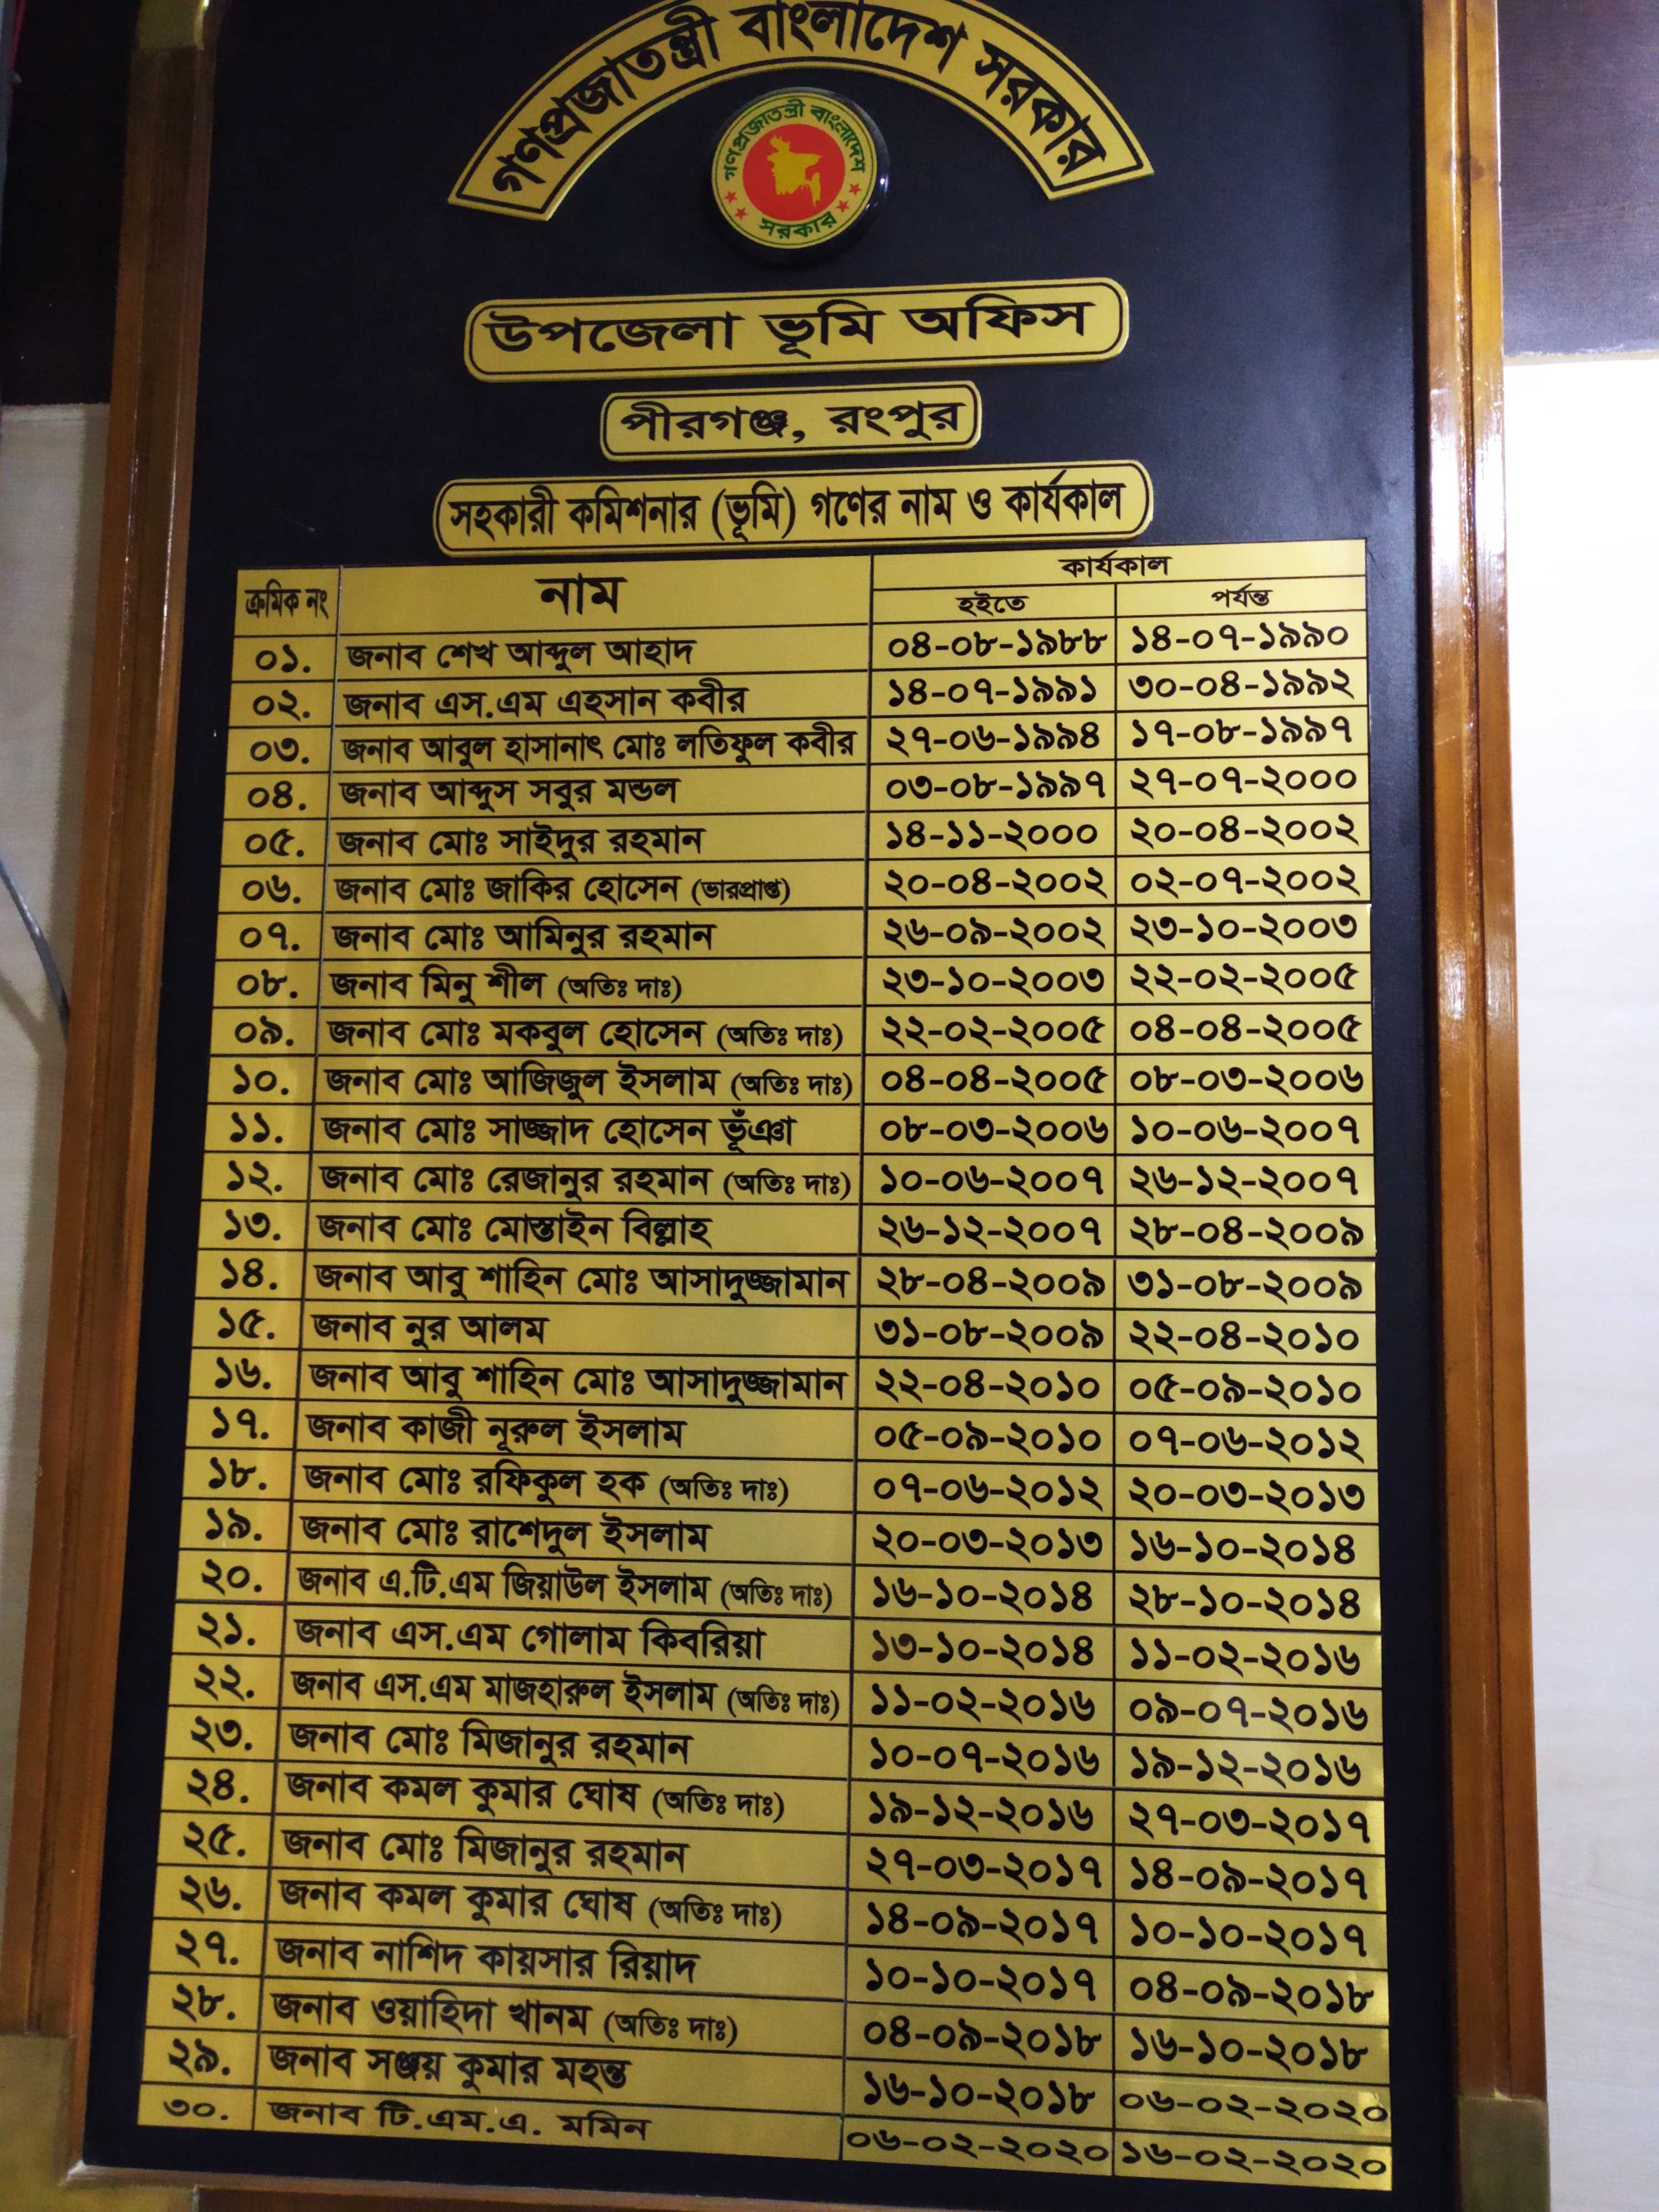 গণপ্রজাতন্ত্রী বাংলাদেশ সরকার
গণপ্রজাতন্ত্রী বাংলাদেশ
সরকার
উপজেলা ভূমি অফিস
পীরগঞ্জ, রংপুর
সহকারী কমিশনার (ভূমি) গণের নাম ও কার্যকাল
ক্রমিক নং নাম কার্যকাল
হইতে পর্যন্ত
০১. জনাব শেখ আব্দুল আহাদ ০৪-০৮-১৯৮৮ ১৪-০৭-১৯৯০
০২. জনাব এস.এম এহসান কবীর ১৪-০৭-১৯৯১ ৩০-০৪-১৯৯২
০৩. জনাব আবুল হাসানাৎ মোঃ লতিফুল কবীর ২৭-০৬-১৯৯৪ ১৭-০৮-১৯৯৭
০৪. জনাব আব্দুস সবুর মন্ডল ০৩-০৮-১৯৯৭ ২৭-০৭-২০০০
০৫. জনাব মোঃ সাইদুর রহমান ১৪-১১-২০০০ ২০-০৪-২০০২
০৬. জনাব মোঃ জাকির হোসেন (ভারপ্রাপ্ত) ২০-০৪-২০০২ ০২-০৭-২০০২
০৭. জনাব মোঃ আমিনুর রহমান ২৬-০৯-২০০২ ২৩-১০-২০০৩
০৮. জনাব মিনু শীল (অতিঃ দাঃ) ২৩-১০-২০০৩ ২২-০২-২০০৫
০৯. জনাব মোঃ মকবুল হোসেন (অতিঃ দাঃ) ২২-০২-২০০৫ ০৪-০৪-২০০৫
১০. জনাব মোঃ আজিজুল ইসলাম (অতিঃ দাঃ) ০৪-০৪-২০০৫ ০৮-০৩-২০০৬
১১. জনাব মোঃ সাজ্জাদ হোসেন ভূঁঞা ০৮-০৩-২০০৬ ১০-০৬-২০০৭
১২. জনাব মোঃ রেজানুর রহমান (অতিঃ দাঃ) ১০-০৬-২০০৭ ২৬-১২-২০০৭
১৩. জনাব মোঃ মোস্তাইন বিল্লাহ ২৬-১২-২০০৭ ২৮-০৪-২০০৯
১৪. জনাব আবু শাহিন মোঃ আসাদুজ্জামান ২৮-০৪-২০০৯ ৩১-০৮-২০০৯
১৫. জনাব নুর আলম ৩১-০৮-২০০৯ ২২-০৪-২০১০
১৬. জনাব আবু শাহিন মোঃ আসাদুজ্জামান ২২-০৪-২০১০ ০৫-০৯-২০১০
১৭. জনাব কাজী নূরুল ইসলাম ০৫-০৯-২০১০ ০৭-০৬-২০১২
১৮. জনাব মোঃ রফিকুল হক (অতিঃ দাঃ) ০৭-০৬-২০১২ ২০-০৩-২০১৩
১৯. জনাব মোঃ রাশেদুল ইসলাম ২০-০৩-২০১৩ ১৬-১০-২০১৪
২০. জনাব এ.টি.এম জিয়াউল ইসলাম (অতিঃ দাঃ) ১৬-১০-২০১৪ ২৮-১০-২০১৪
২১. জনাব এস.এম গোলাম কিবরিয়া ১৩-১০-২০১৪ ১১-০২-২০১৬
২২. জনাব এস.এম মাজহারুল ইসলাম (অতিঃ দাঃ) ১১-০২-২০১৬ ০৯-০৭-২০১৬
২৩. জনাব মোঃ মিজানুর রহমান ১০-০৭-২০১৬ ১৯-১২-২০১৬
২৪. জনাব কমল কুমার ঘোষ (অতিঃ দাঃ) ১৯-১২-২০১৬ ২৭-০৩-২০১৭
২৫. জনাব মোঃ মিজানুর রহমান ২৭-০৩-২০১৭ ১৪-০৯-২০১৭
২৬. জনাব কমল কুমার ঘোষ (অতিঃ দাঃ) ১৪-০৯-২০১৭ ১০-১০-২০১৭
২৭. জনাব নাশিদ কায়সার রিয়াদ ১০-১০-২০১৭ ০৪-০৯-২০১৮
২৮. জনাব ওয়াহিদা খানম (অতিঃ দাঃ) ০৪-০৯-২০১৮ ১৬-১০-২০১৮
২৯. জনাব সঞ্জয় কুমার মহন্ত ১৬-১০-২০১৮ ০৬-০২-২০২০
৩০. জনাব টি.এম.এ. মমিন ০৬-০২-২০২০ ১৬-০২-২০২০